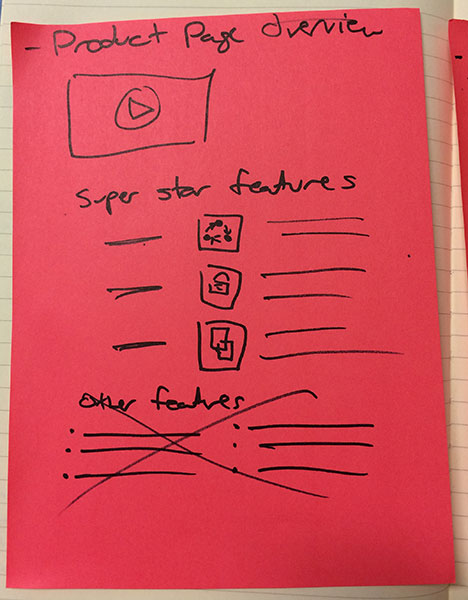 - Product Page Overview
Super star features
Other features